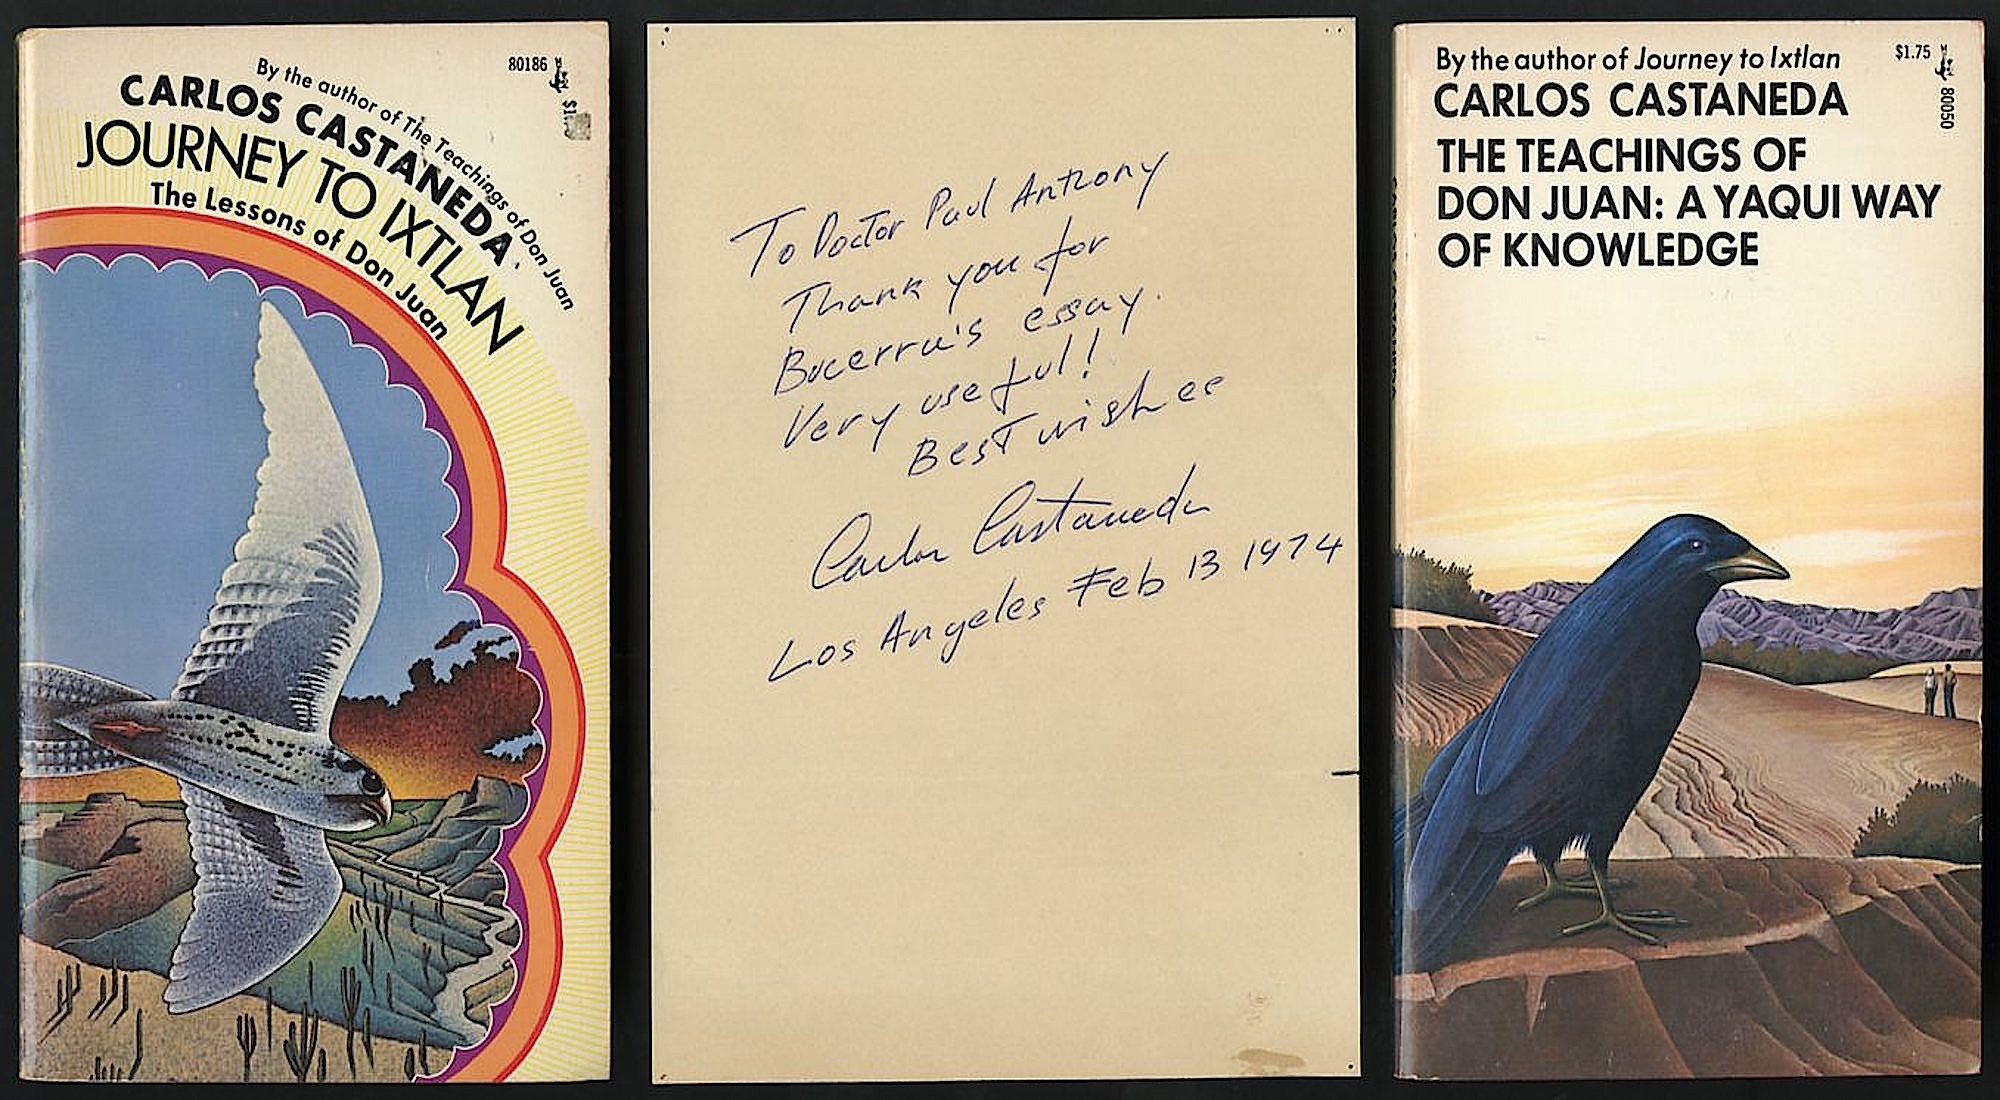 By the author of The Teachings of Don Juan
CARLOS CASTANEDA
JOURNEY TO IXTLAN
The Lessons of Don Juan
80186
To Doctor Paul Antrony
Thank you for
essay.
Very useful!
Best wishes
Carlos Castaneda
Los Angeles Feb 13 1974
By the author of Journey to Ixtlan
CARLOS CASTANEDA
THE TEACHINGS OF
DON JUAN: A YAQUI WAY
OF KNOWLEDGE
$1.75
80050